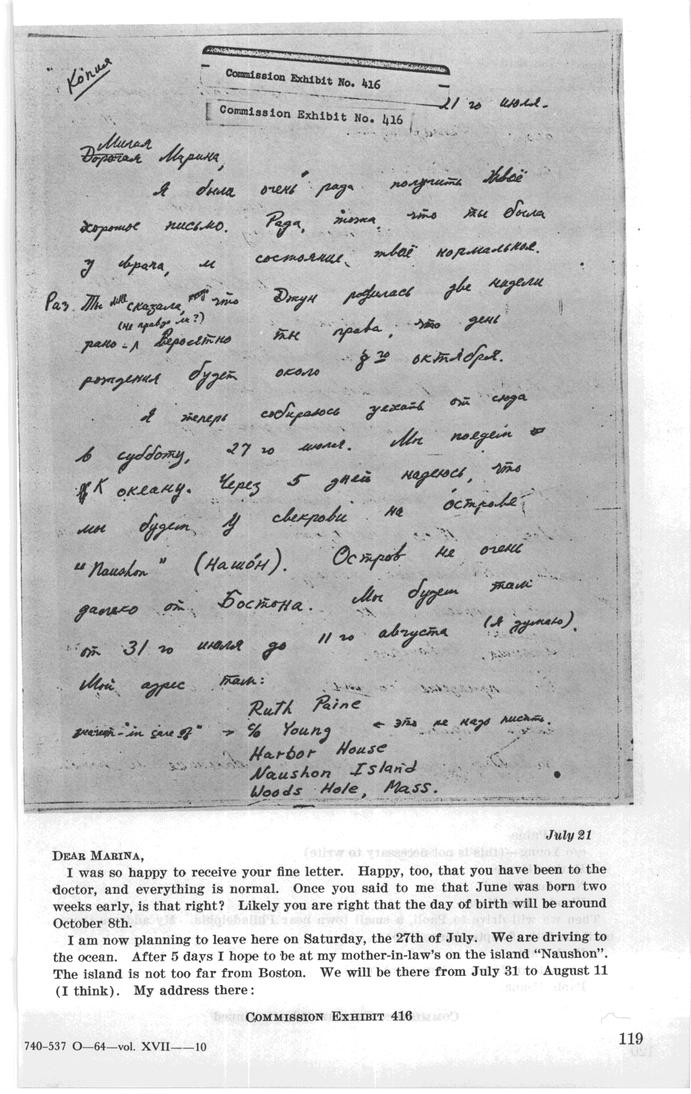 Копия
Commission Exhibit No. 416
Commission Exhibit No. 416
21 го июля.
Милая
Дорогая Марина,
Я была очень рада получить твоё
хорошое письмо. Рада, тожа, что ты была
у врача, и состояние твоё нормальное.
Раз Ты сказала, что Джун родилась две недели
(не правда ли?)
рано - Вероятно ты права, что день
рождения будет около 8 го октября.
Я теперь собираюсь уехать от сюда
в субботу, 27 го июля. Мы поедем
К океану. Через 5 дней надеюсь, что
мы будем у свекрови на острове
"Naushon" (Нашо́н). Остров не очень
далеко от Бостона. Мы будем там
от 31 го июля до 11 го августа (я думаю).
Мой адрес там:
Ruth Paine
значит "in care of" → c/o Young ← это не надо писать.
Harbor House
Naushon Island
Woods Hole, Mass.
July 21
DEAR MARINA,
I was so happy to receive your fine letter. Happy, too, that you have been to the
doctor, and everything is normal. Once you said to me that June was born two
weeks early, is that right? Likely you are right that the day of birth will be around
October 8th.
I am now planning to leave here on Saturday, the 27th of July. We are driving to
the ocean. After 5 days I hope to be at my mother-in-law's on the island "Naushon".
The island is not too far from Boston. We will be there from July 31 to August 11
(I think). My address there:
COMMISSION EXHIBIT 416
119
740-537 O—64—vol. XVII——10